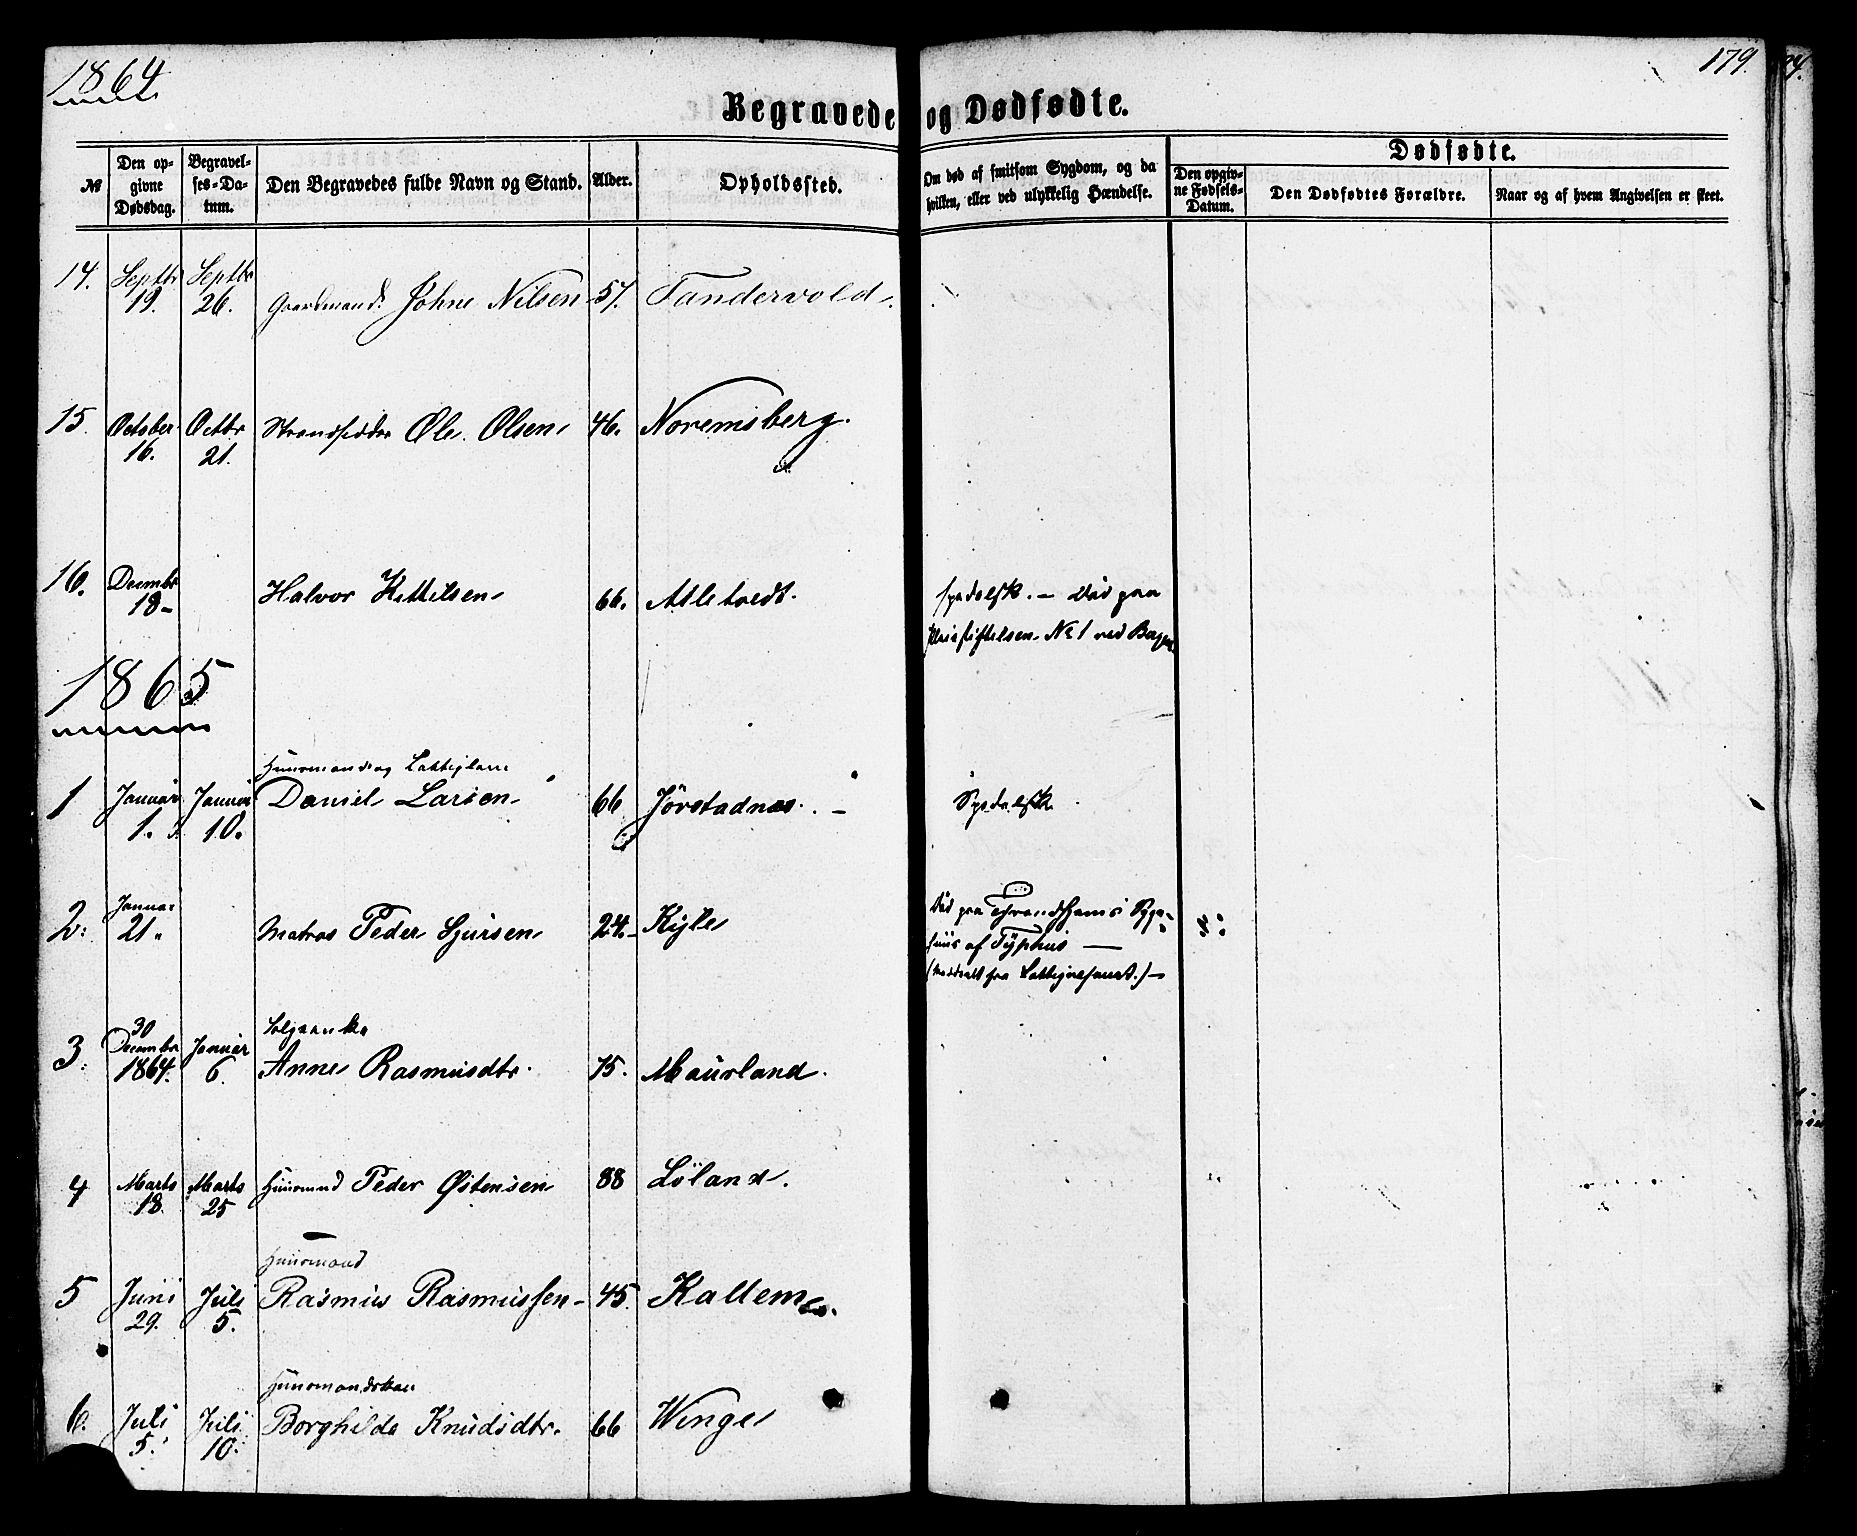 1864
179.
Begravede og Dødfødte.
№
Den op-
givne
Dødsdag.
Begravel-
ses-Da-
tum.
Den Begravedes fulde Navn og Stand.
Alder.
Opholdssted.
Om død af smitsom Sygdom, og da
hvilken, eller ved ulykkelig Hændelse.
Dødfødte.
Den opgiv-
ne Fødsels-
Datum.
Den Dødfødtes Forældre.
Naar og af hvem Angivelsen er skeet.
14. Septbr 19. Septbr 26. Gaardmand Johne Nilsen 57. Tandervold.
15. October 16. Octbr 21. Strandsidder Ole Olsen 46. Noremsberg.
16. Decembr 18 Halvor Kittilsen 66. Spedalsk. — Død paa
Pleiestiftelsen No 1 ved Bergen
1865
Huusmand og
1 Januar 1. Januar 10. Daniel Larsen 66 Jörstadnes. Spedalsk
2. Januar 21. Matros Peder Sjursen 24. Kyle Død paa Throndhjems Syge-
huus af Typhus —
3. 30 Decembr 1864. Januar 6. Anne Rasmusdtr. 75. Maurland.
4 Marts 18 Marts 25 Huusmnd Peder Østensen 88 Löland.
Huusmand
5 Juni 29. Juli 5. Rasmus Rasmussen 45. Kallem
Huusmandskone
6. Juli 5. Juli 10. Borghilde Knudsdtr. 66 Winge